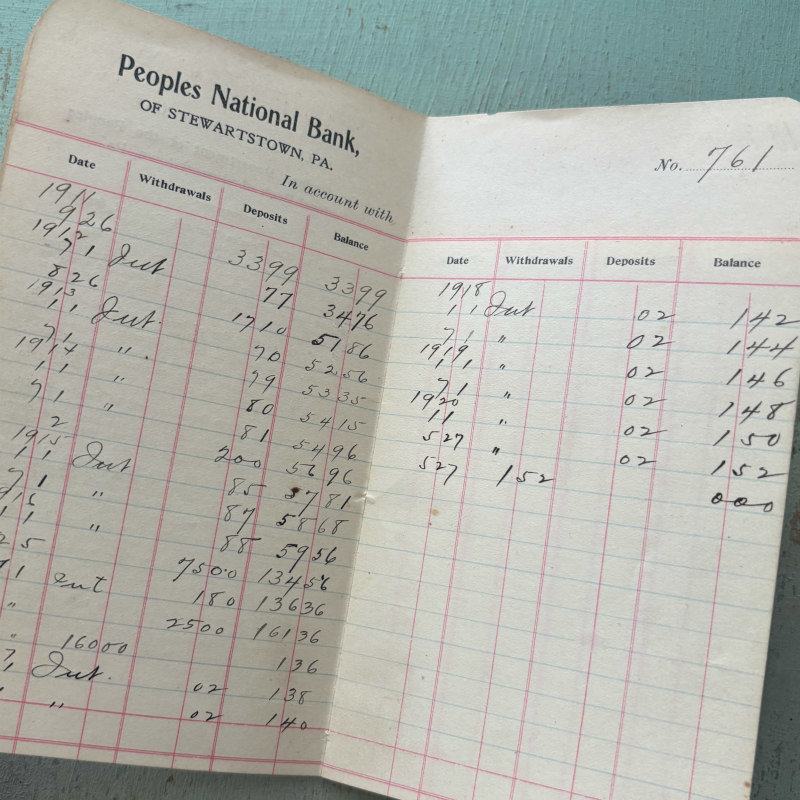 Peoples National Bank,
OF STEWARTSTOWN, PA.
In account with
Date Withdrawals Deposits Balance
1911
9 26 33 99 33 99
1912
7 1 Int 77 34 76
8 26 17 10 51 86
1913
1 1 Int. 70 52 56
7 1 " 79 53 35
1914
1 1 " 80 54 15
7 1 " 81 54 96
2 2 00 56 96
1915
1 1 Int 85 57 81
7 1 " 87 58 68
1 1 " 88 59 56
2 5 75 00 134 56
1 Int 1 80 136 36
" 25 00 161 36
" 160 00 1 36
Int. 02 1 38
" 02 1 40
No. 761
Date Withdrawals Deposits Balance
1918
1 1 Int 02 1 42
7 1 " 02 1 44
1919
1 1 " 02 1 46
7 1 02 1 48
1920
1 1 " 02 1 50
5 27 " 02 1 52
5 27 1 52 0 00